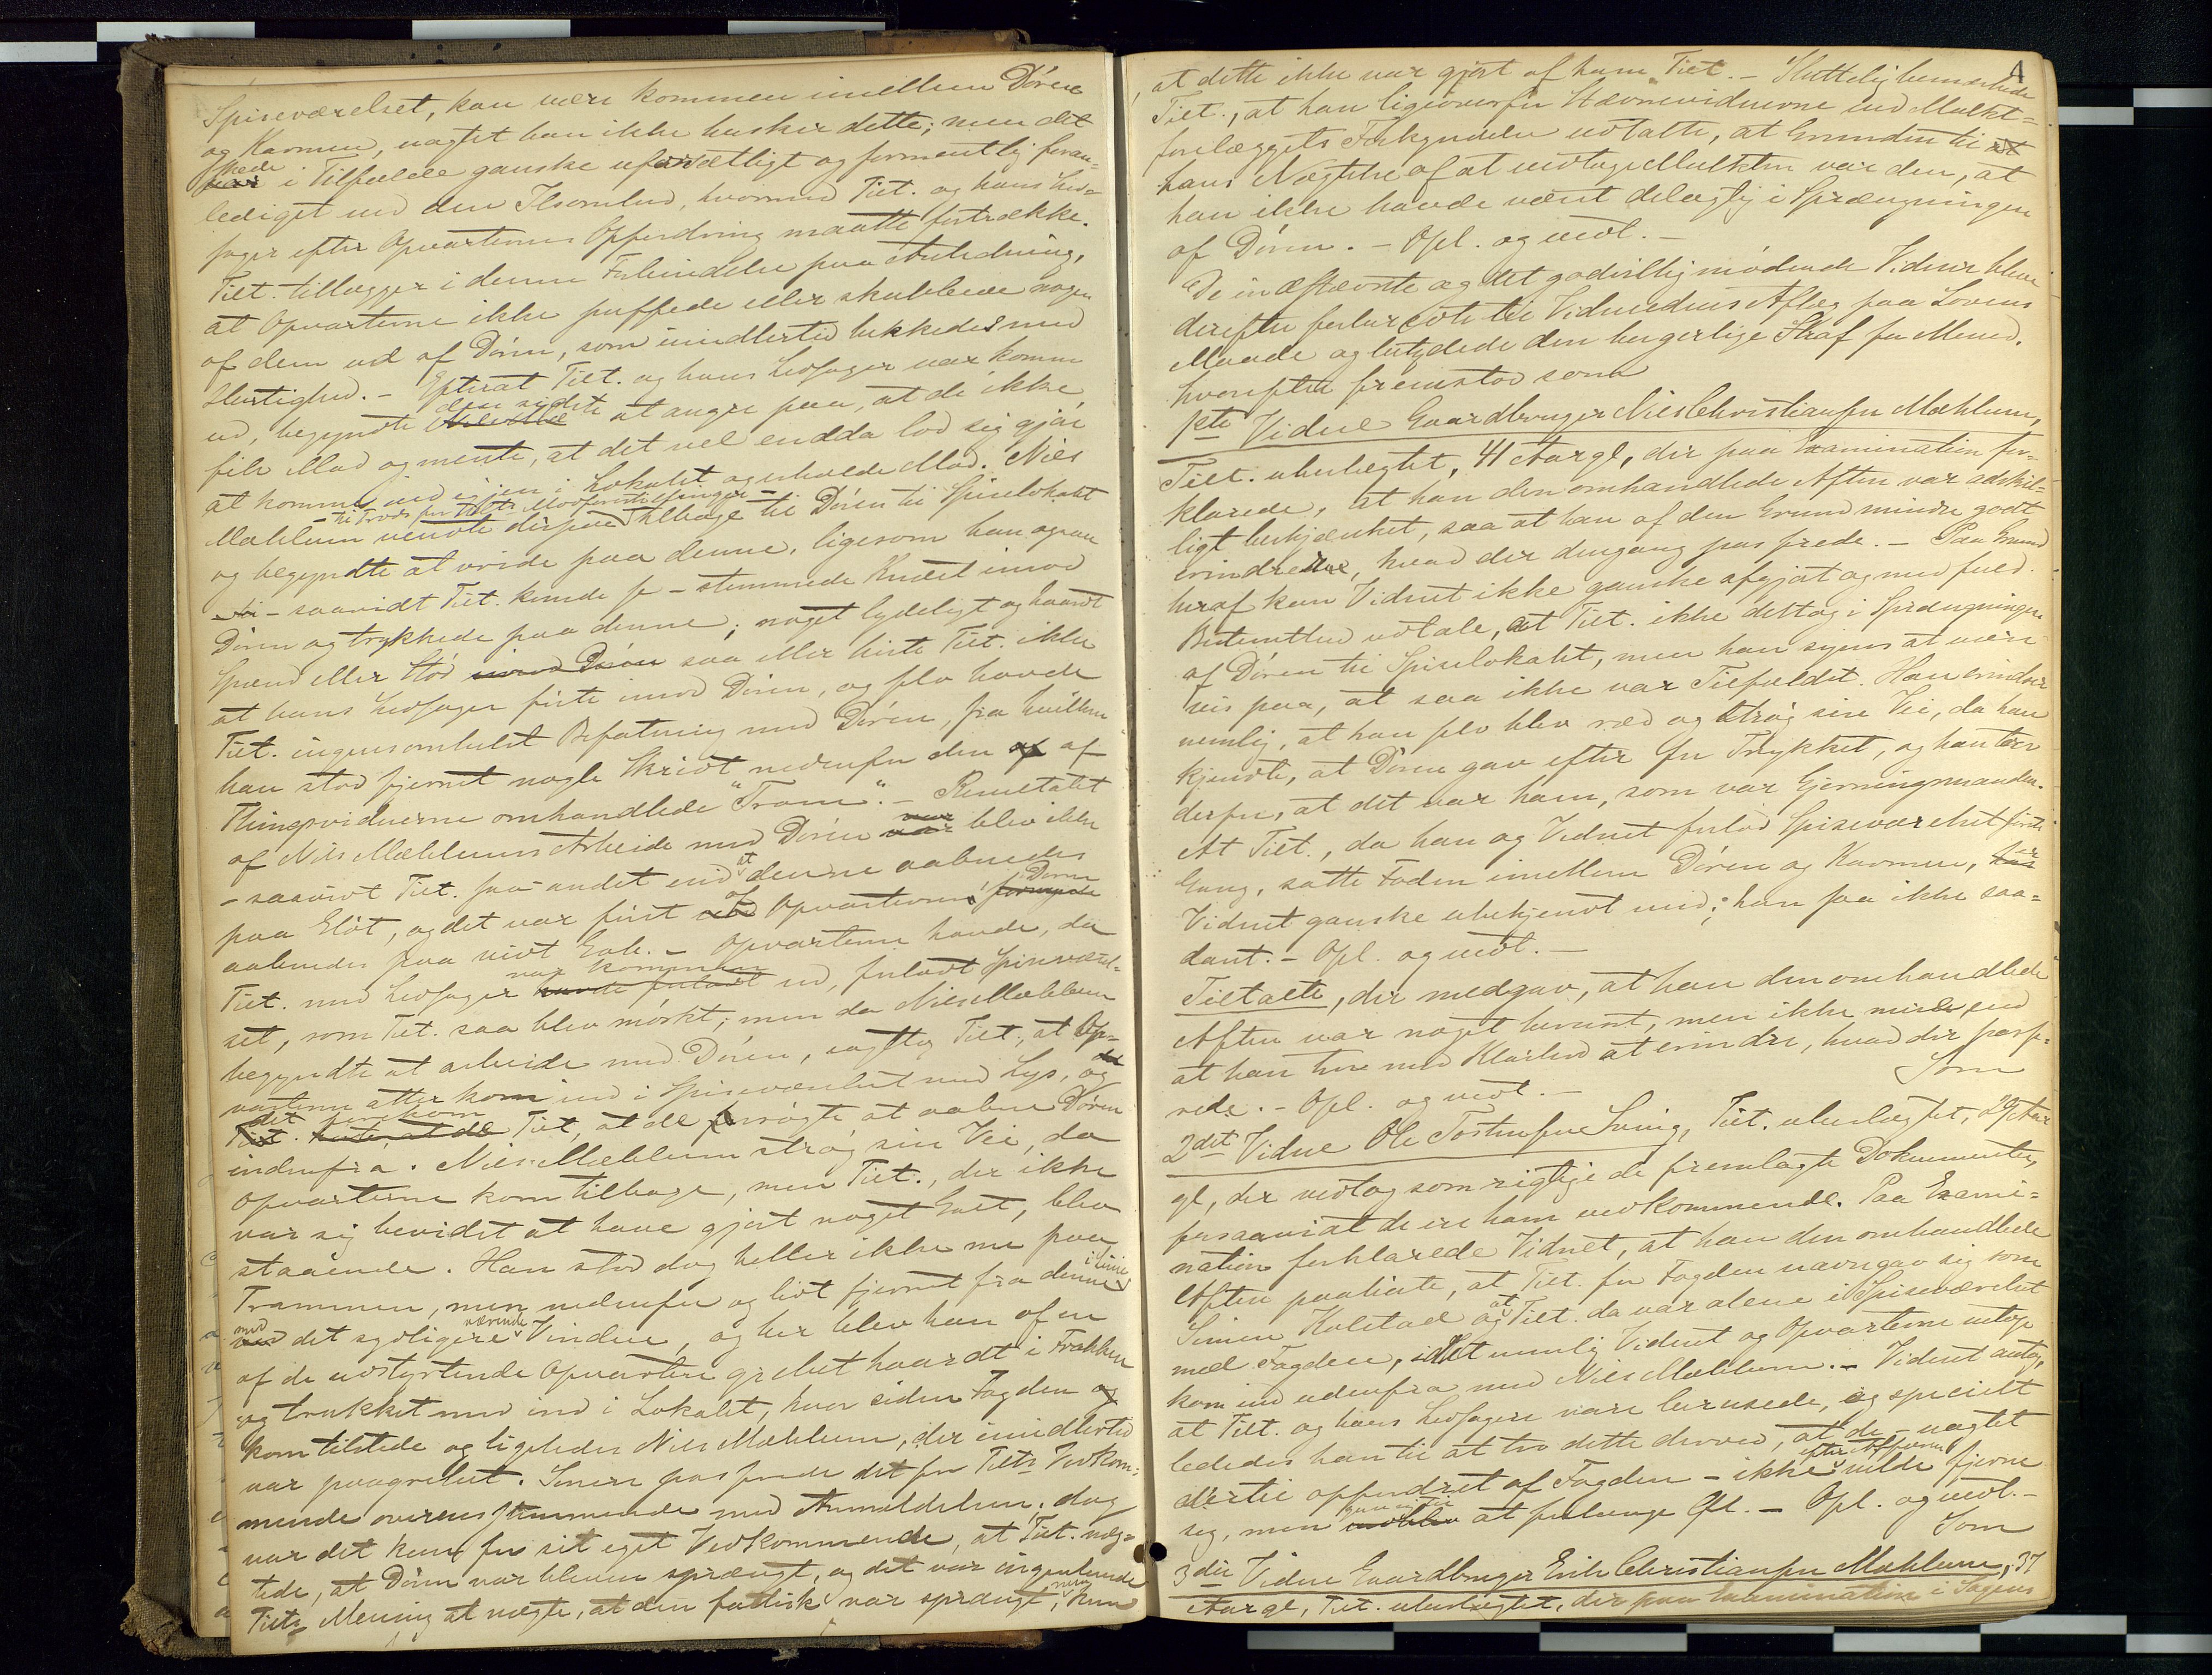 Spiseværelset, kan være kommen imellem Døren
og Karmen, uagtet han ikke husker dette; men det
skede i Tilfælde ganske uforsætligt og formentlig foran-
lediget ved den Ilsomhed, hvormed Tilt. og hans Led-
sager efter Opvarternes Opfordring maatte fortrække.
Tilt. tillægger i denne Forbindelse paa Anledning,
at Opvarterne ikke puffede eller skubbede nogen
af dem ud af Døren, som imidlertid lukkedes med
Hurtighed. – Efterat Tilt. og hans Ledsager var kommen
ud, begyndte den sidste at angre paa, at de ikke
fik Mad og mente, at det vel endda lod sig gjøre
at komme ind igjen i Lokalet og erholde Mad. Niels
– til Trods for Tilts Modforestillinger –
Mæhlum vendte derpaa tilbage til Døren til Spiselokalet
og begyndte at vride paa denne, ligesom han ogsaa
– saavidt Tilt. kunde se – stemmede Knæet imod
Døren og trykkede paa denne; noget lydeligt og haardt
Spænd eller Stød imod Døren saa eller hørte Tilt. ikke
at hans Ledsager førte imod Døren, og selv havde
Tilt. ingensomhelst Befatning med Døren, fra hvilken
han stod fjernet nogle Skridt nedenfor den af af
Thingsvidnerne omhandlede "Tram". – Resultatet
af Nils Mæhlums Arbeide med Døren var blev ikke
– saavidt Tilt. saa – andet end at denne aabnedes
paa Gløt, og det var først af Opvarterne Døren
aabnedes paa vidt Gab. – Opvarterne havde, da
Tilt. med Ledsager var kommen ud, forladt Spiseværel-
set, som Tilt. saa blev mørkt; men da Niels Mæhlum
begyndte at arbeide med Døren, sagtte Tilt., at Op-
varterne atter kom ind i Spiseværelset med Lys, og
det forekom Tilt, at de forsøgte at aabne Døren
indenfra. Niels Mæhlum strøg sin Vei, da
Opvarterne kom tilbage, men Tilt., der ikke
var sig bevidst at have gjort noget Galt, blev
staaende. Han stod dog heller ikke nu paa
Trammen, men nedenfor og lidt fjernet fra denne i Linie
med det sydligere værende Vindue, og her blev han af en
af de udstyrtende Opvartere grebet haardt i Frakken
og trukket med ind i Lokalet, hvor siden Fogden og
kom tilstede og ligeledes Niels Mæhlum, der imidlertid
var paagrebet. Senere passerede det for Tilts Vedkom-
mende overensstemmende med Anmeldelsen, dog
var det kun for sit eget Vedkommende, at Tilt. næg-
tede, at Døren var bleven sprængt, og det var ingenlunde
Tilts Mening at nægte, at den faktisk var sprængt, men kun
A
, at dette ikke var gjort af ham Tilt. – Sluttelig bemærkede
Tilt., at han ligeoverfor Stævnevidnerne ved Mulkt-
forelæggets Forkyndelse udtalte, at Grunden til
hans Nægtelse af at vedtage Mulkten var den, at
han ikke havde været delagtig i Sprængningen
af Døren. – Opl. og vedt. –
De indstævnte og det godvillig mødende Vidner blev
derefter forlæst Edste til Vidneedens Aflæg paa Lovens
Maade og betydede den borgerlige Straf for Mened,
hvorefter fremstod som
1ste Vidne Gaardbruger Niels Christiansen Mæhlum,
Tilt. ubeslægtet, 41 Aar gl., der paa Examination for-
klarede, at han den omhandlede Aften var adskil-
ligt beskjænket, saa at han af den Grund mindre godt
erindrer, hvad der dengang passerede. – Paa Grund
heraf kan Vidnet ikke ganske afgjort og med fuld
Bestemthed udtale, at Tilt. ikke deltog i Sprængningen
af Døren til Spiselokalet, men han synes at være
vis paa, at saa ikke var Tilfældet. Han erindrer
nemlig, at han selv blev ræd og strøg sin Vei, da han
kjendte, at Døren gav efter for Trykket, og han tror
derfor, at det var ham, som var Gjerningsmanden.
At Tilt., da han og Vidnet forlod Spiseværelset første
Gang, satte Foden imellem Døren og Karmen, er
Vidnet ganske ubekjendt med; han saa ikke saa-
dant. – Opl. og vedt. –
Tiltalte, der medgav, at han den omhandlede
Aften var noget beruset, men ikke mere end
at han tror med Klarhed at erindre, hvad der passe-
rede. – Opl. og vedt. –
Som
2det Vidne Ole Tostensen Sving, Tilt. ubeslægtet, 29 Aar
gl., der vedtog som rigtige de fremlagte Dokumenter,
forsaavidt de ere ham vedkommende. Paa Exami-
nation forklarede Vidnet, at han den omhandlede
Aften paahørte, at Tilt. for Fogden navngav sig som
Simen Kolstad og at Tilt. da var alene i Spiseværelset
med Fogden, idet nemlig Vidnet og Opvarterne netop
kom ind udenfra med Niels Mæhlum. – Vidnet antog,
at Tilt. og hans Ledsagere vare berusede, og specielt
lededes han til at tro dette derved, at de – uagtet
dertil opfordret af Fogden – ikke efter Opfordring vilde fjerne
sig, men at forlange Øl. – Opl. og vedt. –
Som
3die Vidne Gaardbruger Erik Christiansen Mæhlum, 37
Aar gl., Tilt. ubeslægtet, der paa Examination i Sagens